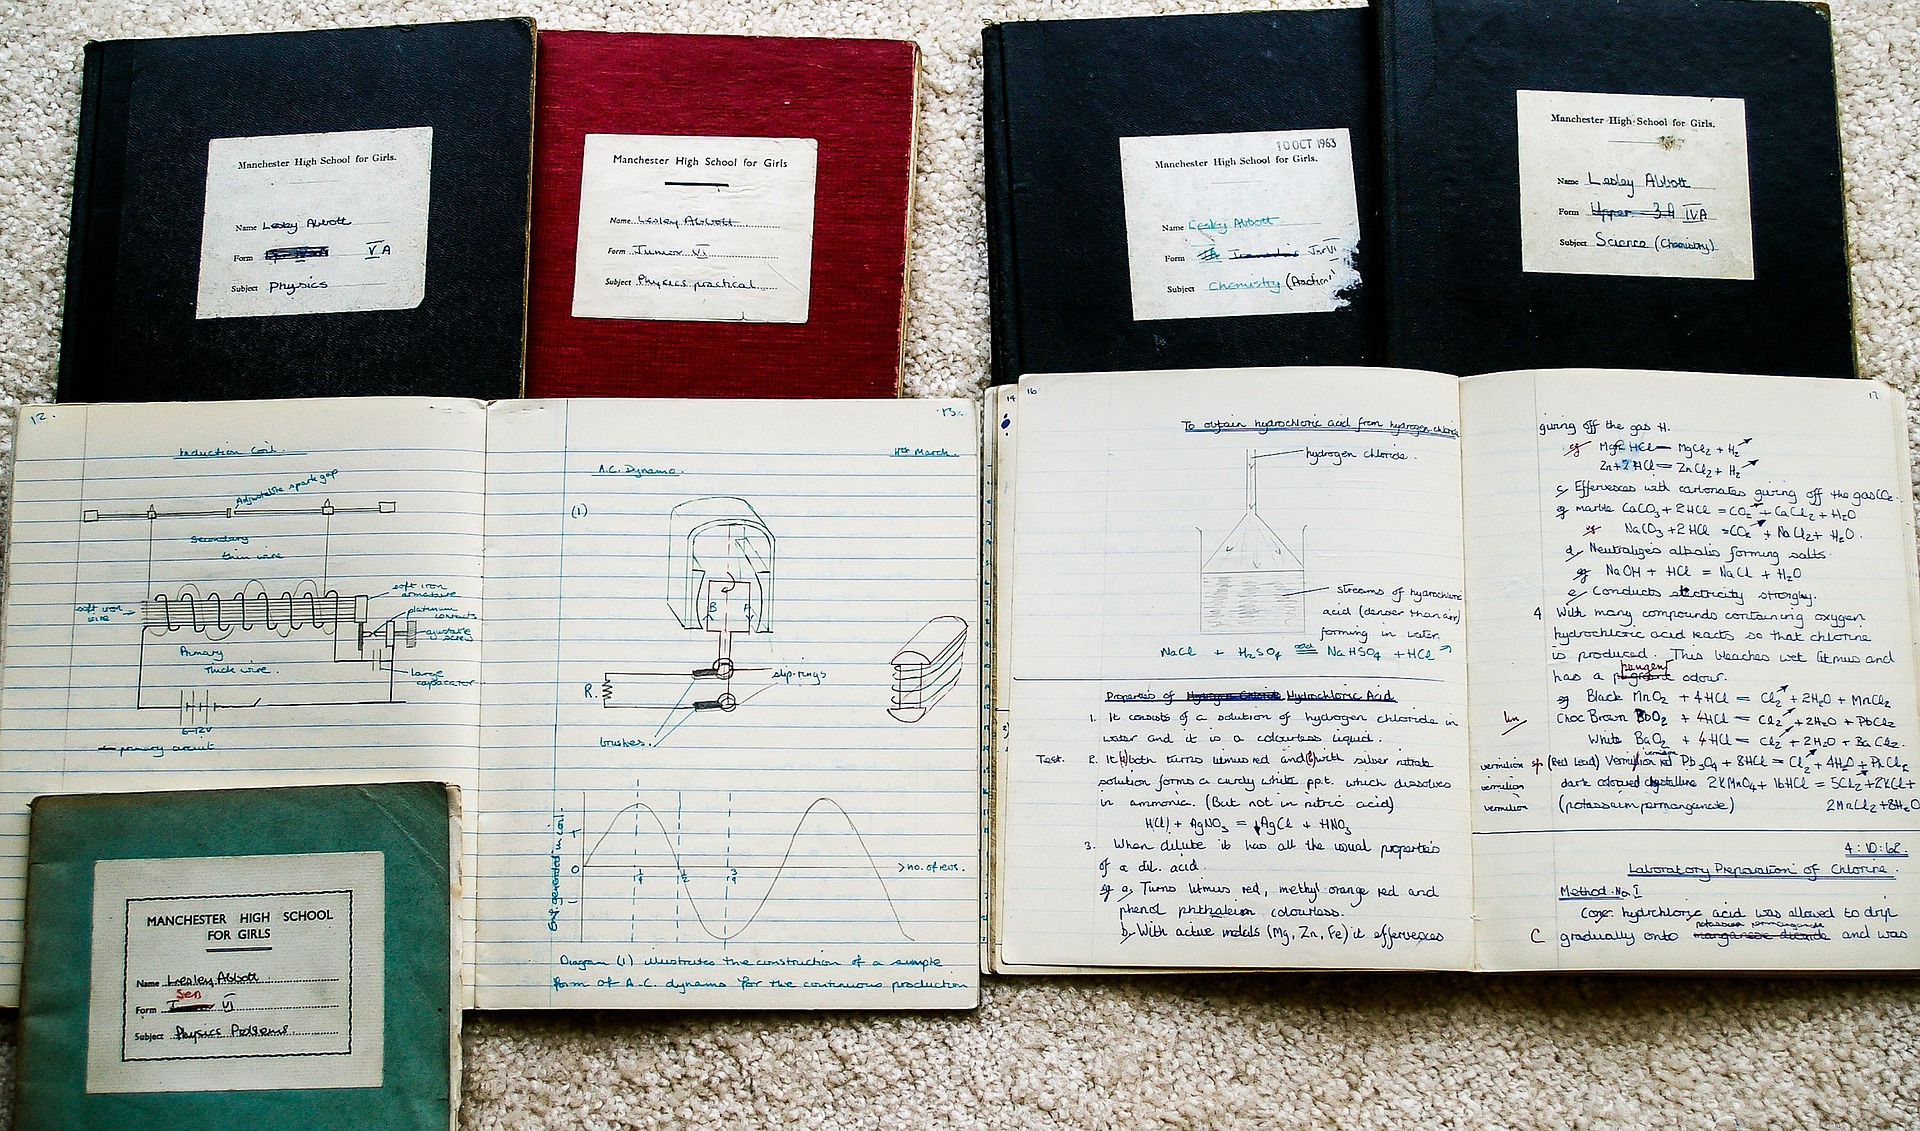 Manchester High School for Girls.
Name Lesley Abbott
Form VA
Subject Physics
Manchester High School for Girls
Name Lesley Abbott
Form Junior VI
Subject Physics practical
10 OCT 1963
Manchester High School for Girls.
Name Lesley Abbott
Form Jun VI
Subject Chemistry
Manchester High School for Girls.
Name Lesley Abbott
Form Upper 3A IVA
Subject Science (Chemistry)
12.
Induction Coil.
Adjustable spark gap
Secondary
thin wire
soft iron
armature
soft iron
wire
platinum
contacts
adjustable
screw
Primary
thick wire.
large
capacitor
6-12V
primary circuit
13.
March.
A.C. Dynamo.
(1)
B
A
R.
slip-rings
brushes.
E.m.f. generated in coil
+
0
1/4
1/2
3/4
no. of revs.
Diagram (1) illustrates the construction of a simple
form of A.C. dynamo for the continuous production
MANCHESTER HIGH SCHOOL
FOR GIRLS
Name Lesley Abbott
Sen
Form VI
Subject Physics Problems
14
16
To obtain hydrochloric acid from hydrogen chloride
hydrogen chloride.
streams of hydrochloric
acid (denser than air)
forming in water.
NaCl + H₂SO₄ = NaHSO₄ + HCl
Properties of Hydrochloric Acid
1. It consists of a solution of hydrogen chloride in
water and it is a colourless liquid.
Test. 2. It both turns litmus red and with silver nitrate
solution forms a curdy white ppt. which dissolves
in ammonia. (But not in nitric acid)
HCl + AgNO₃ = ↓AgCl + HNO₃
3. When dilute it has all the usual properties
of a dil. acid.
eg a, Turns litmus red, methyl orange red and
phenol phthalein colourless.
b, With active metals (Mg, Zn, Fe) it effervesces
17
giving off the gas H.
eg Mg+2HCl = MgCl₂ + H₂
Zn+2HCl = ZnCl₂ + H₂
c, Effervesces with carbonates giving off the gas CO₂.
eg marble CaCO₃ + 2HCl = CO₂ + CaCl₂ + H₂O
d, Neutralizes alkalis forming salts.
eg NaOH + HCl = NaCl + H₂O
e, Conducts electricity strongly.
4 With many compounds containing oxygen
hydrochloric acid reacts so that chlorine
is produced. This bleaches wet litmus and
pungent
has a odour.
eg Black MnO₂ + 4HCl = Cl₂ + 2H₂O + MnCl₂
Choc Brown PbO₂ + 4HCl = Cl₂ + 2H₂O + PbCl₂
White BaO₂ + 4HCl = Cl₂ + 2H₂O + BaCl₂.
vermilion sp (Red Lead) Pb₃O₄ + 8HCl = Cl₂ + 4H₂O +
vermilion dark coloured crystalline 2KMnO₄ + 16HCl = 5Cl₂ + 2KCl +
vermilion (potassium permanganate) 2MnCl₂ + 8H₂O
4:10:62.
Laboratory Preparation of Chlorine.
Method No. I
Conc. hydrochloric acid was allowed to drip
potassium permanganate
C gradually onto manganese dioxide and was